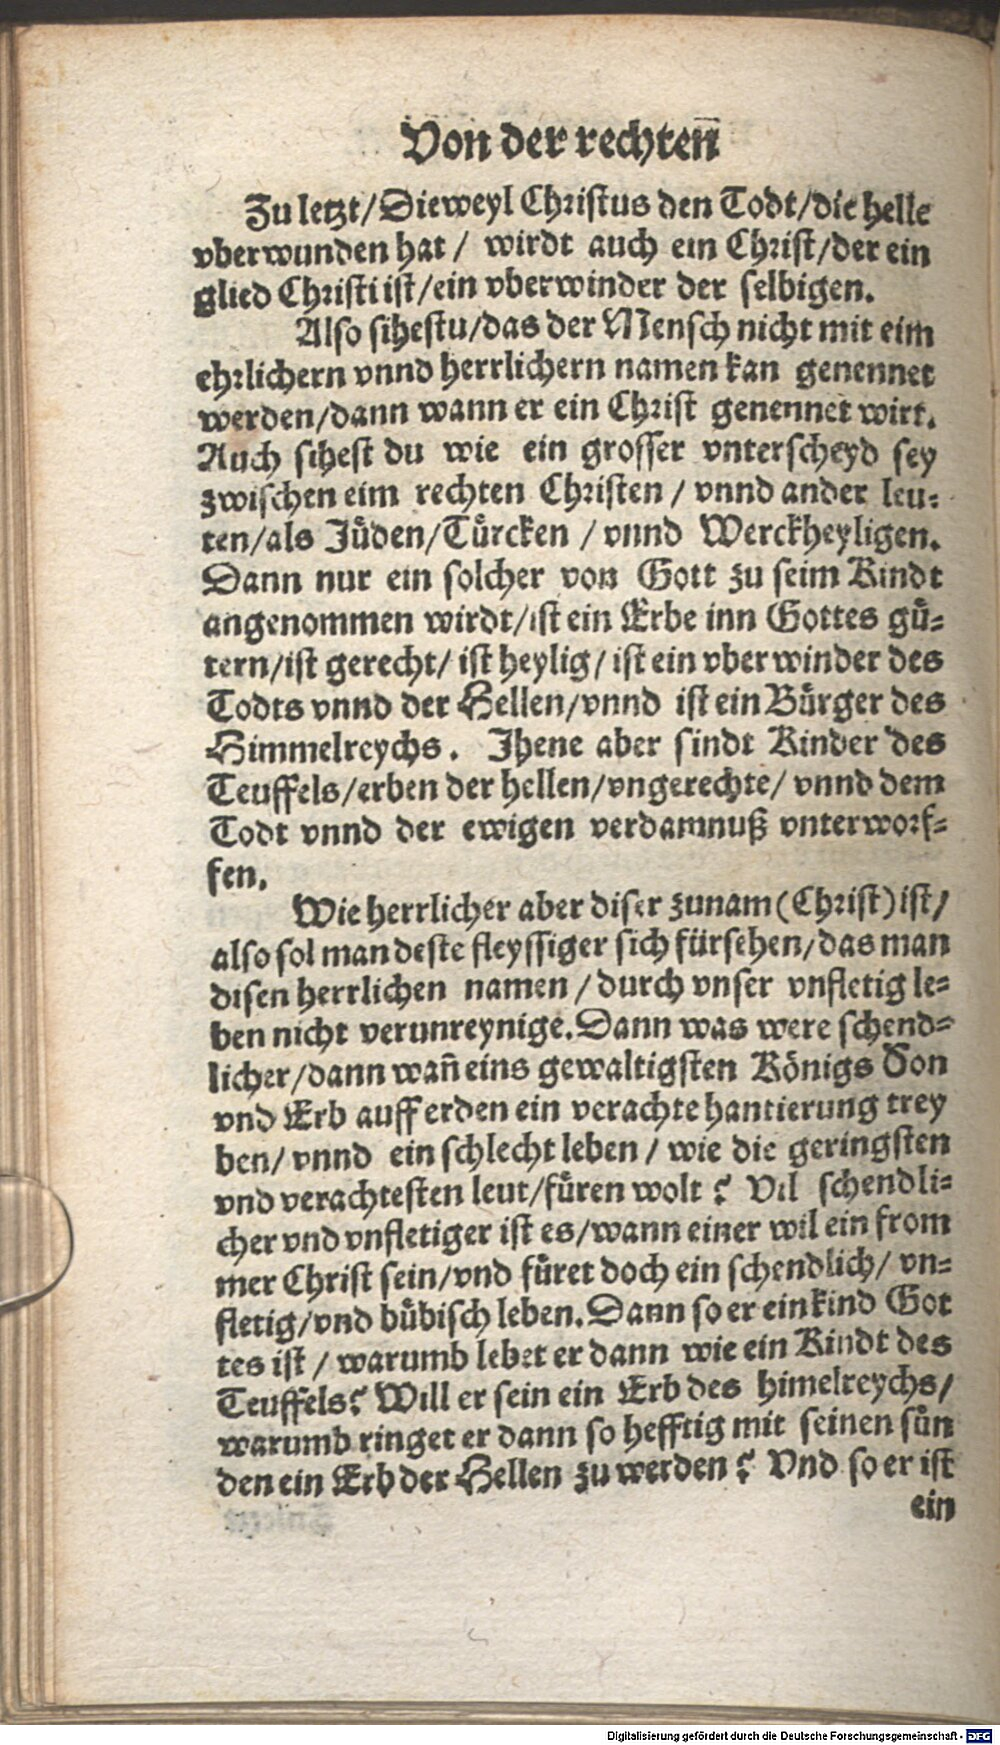 Von der rechteñ
Zu letzt/Dieweyl Christus den Todt/die helle
vberwunden hat/ wirdt auch ein Christ/der ein
glied Christi ist/ein vberwinder der selbigen.
Also sihestu/das der Mensch nicht mit eim
ehrlichern vnnd herrlichern namen kan genennet
werden/dann wann er ein Christ genennet wirt.
Auch sihest du wie ein grosser vnterscheyd sey
zwischen eim rechten Christen/ vnnd ander leu-
ten/als Jüden/Türcken/ vnnd Werckheyligen.
Dann nur ein solcher von Gott zu seim Kindt
angenommen wirdt/ist ein Erbe inn Gottes gü-
tern/ist gerecht/ ist heylig/ ist ein vberwinder des
Todts vnnd der Hellen/vnnd ist ein Bürger des
Himmelreychs. Jhene aber sindt Kinder des
Teuffels/erben der hellen/vngerechte/ vnnd dem
Todt vnnd der ewigen verdamnuß vnterworf-
fen.
Wie herrlicher aber diser zunam(Christ)ist/
also sol man deste fleyssiger sich fürsehen/das man
disen herrlichen namen/durch vnser vnfletig le-
ben nicht verunreynige. Dann was were schend-
licher/dann wañ eins gewaltigsten Königs Son
vnd Erb auff erden ein verachte hantierung trey
ben/ vnnd ein schlecht leben/ wie die geringsten
vnd verachtesten leut/füren wolt? Vil schendli-
cher vnd vnfletiger ist es/wann einer wil ein from
mer Christ sein/vnd füret doch ein schendlich/ vn-
fletig/vnd bübisch leben. Dann so er ein kind Got
tes ist/ warumb lebet er dann wie ein Kindt des
Teuffels? Will er sein ein Erb des himelreychs/
warumb ringet er dann so hefftig mit seinen sün
den ein Erb der Hellen zu werden? Vnd so er ist
ein
Digitalisierung gefördert durch die Deutsche Forschungsgemeinschaft - DFG